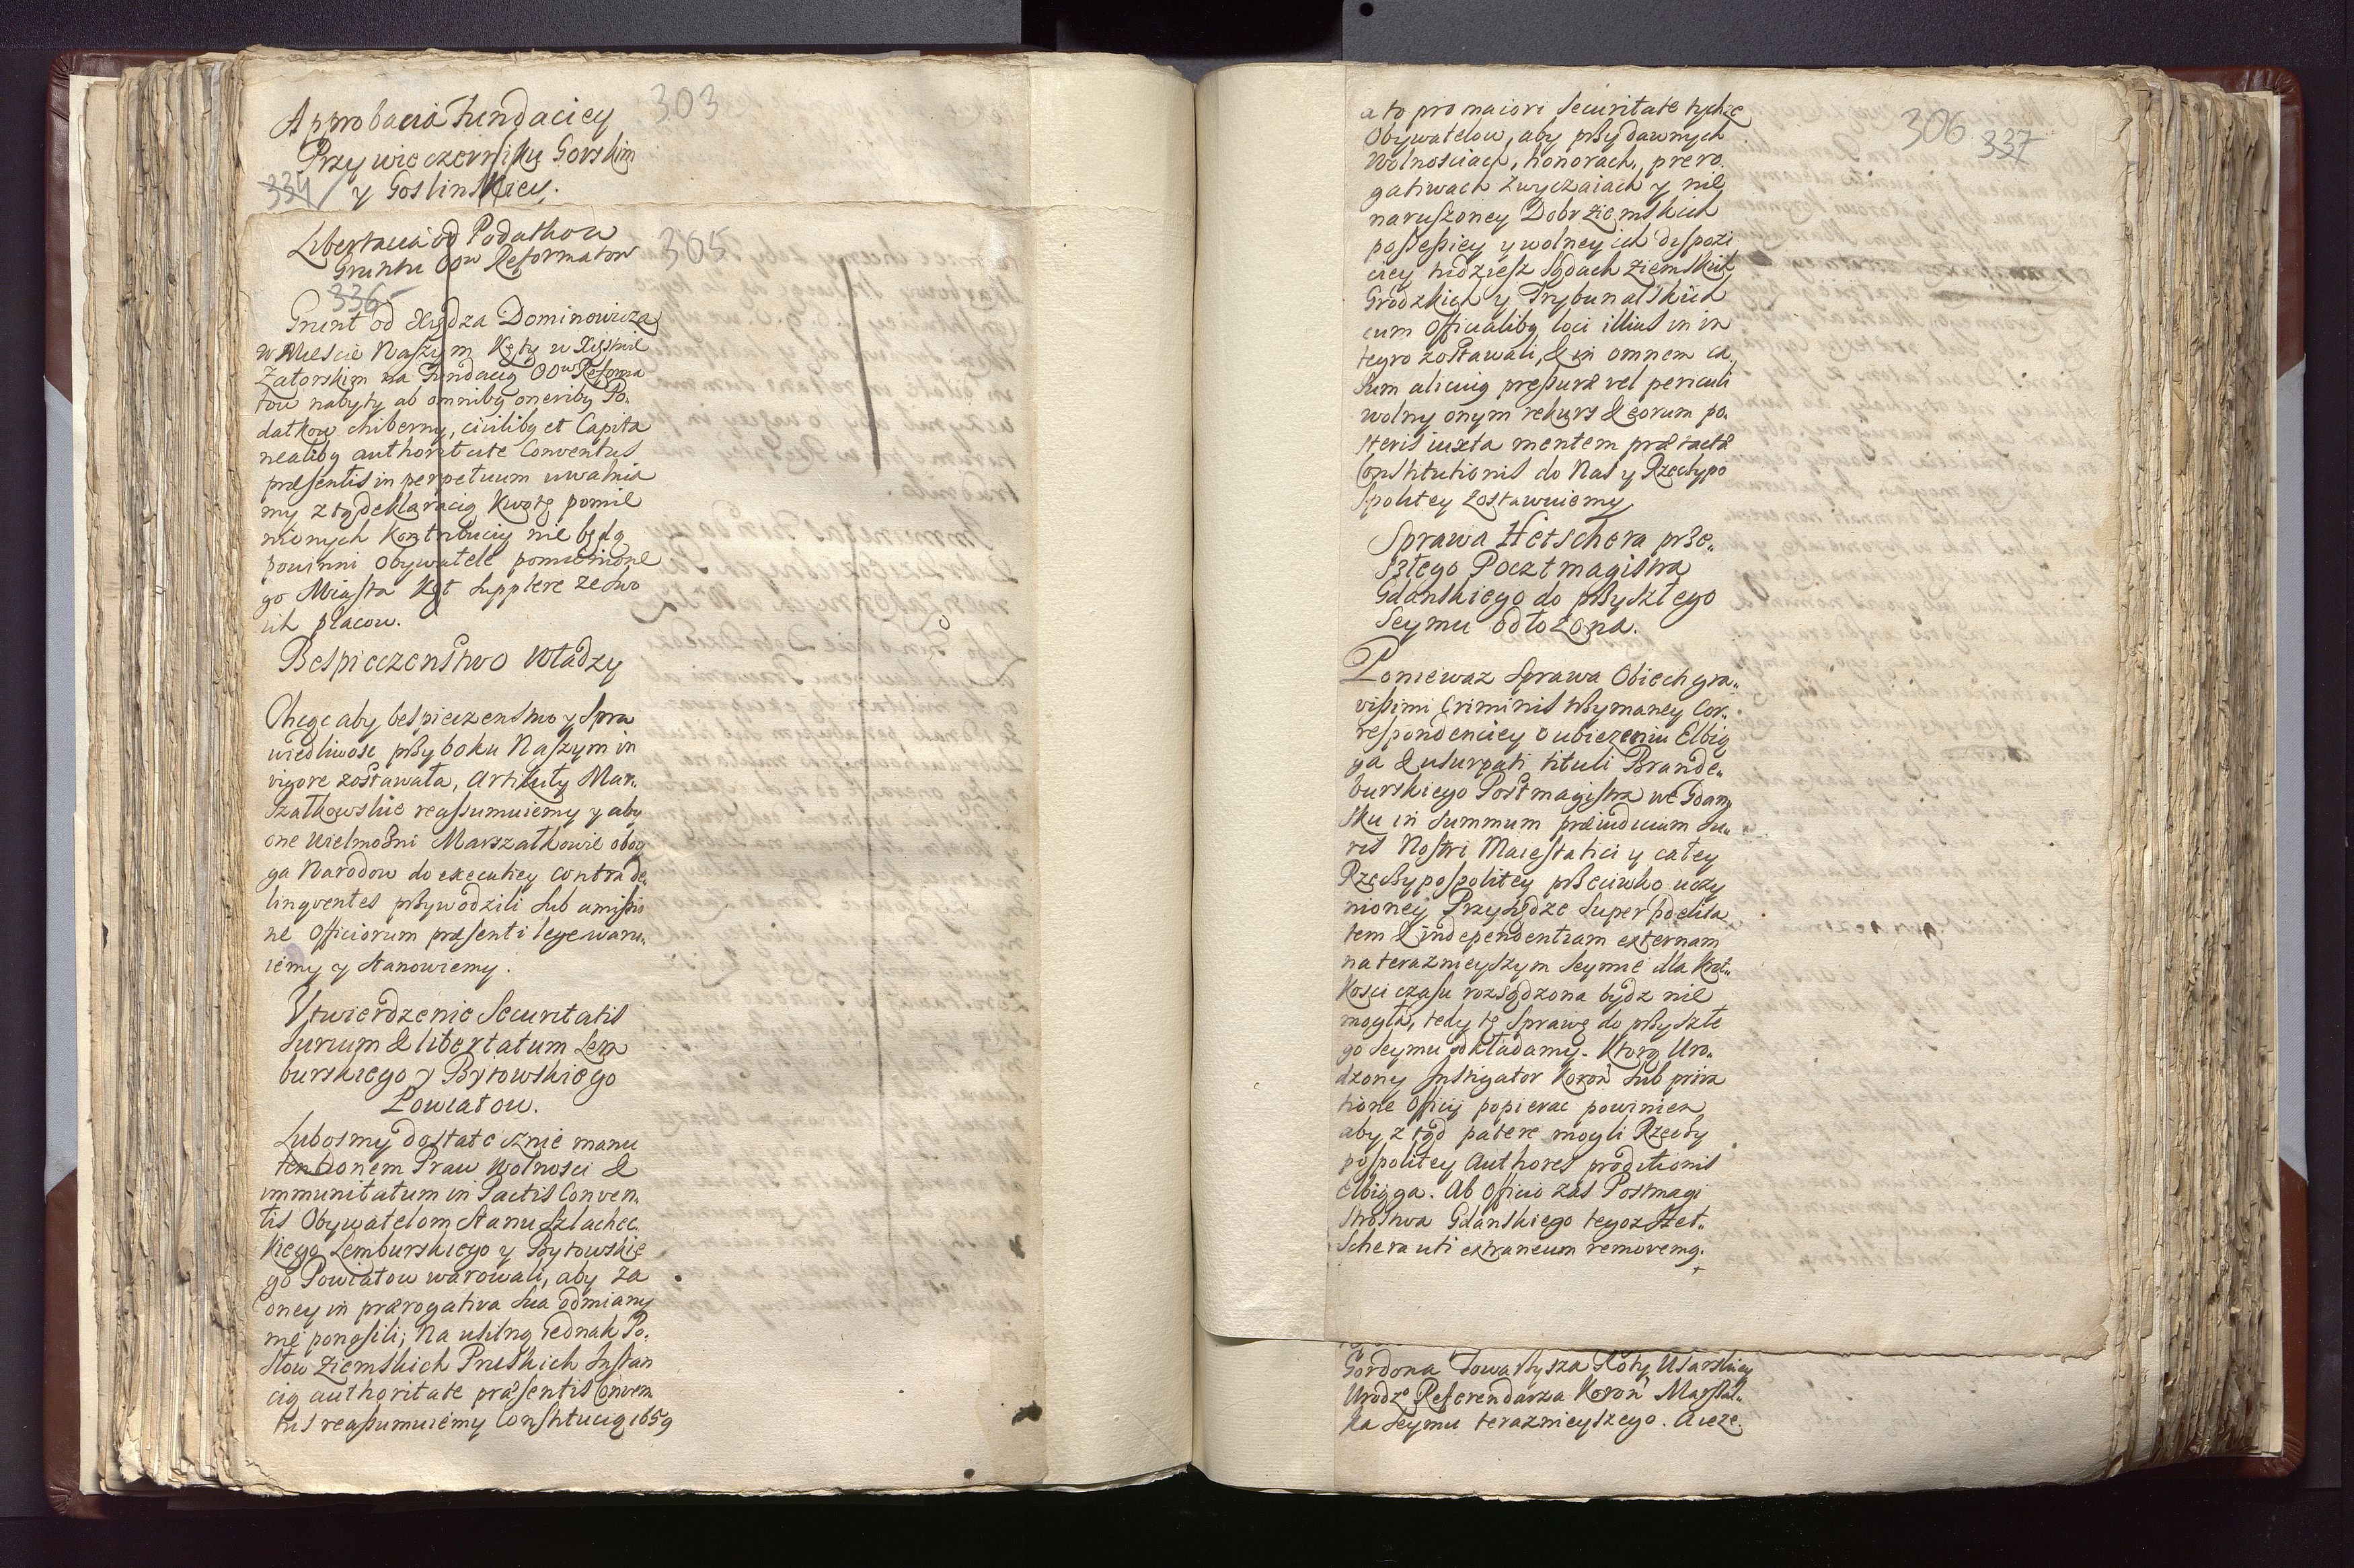 303
Aprobacia Fundaciey
Przy wieczerniku Gorskim
334 y Goslinskiey.
Libertacia od Podatkow
305
Gruntu OOw Reformatow
336
Grunt od Xiędza Dominowicza
w Miescie Naszym Kęty w Xięstwie
Zatorskim na Fundacią OOw Reforma
tow nabyty ab omnibq oneribq Po„
datkow chiberny, civilibq et Capita
nealibq authoritate Conventus
præsentis in perpetuum uwalnia
my z tą deklaracią kwotę pomie
nionych kontribuciy nie będą
powinni Obywatele pomienione
go Miasta Kęt supplere ze swo
ich placow.
Bespieczenstwo Władzy
Chcąc aby bespieczenstwo y Spra
wiedliwosc przy boku Naszym in
vigore zostawała, Artikuły Mar„
szałkowskie reassumuiemy y aby
one Wielmożni Marszałkowie oboy
ga Narodow do executiey contra de„
linqventes przywodzili sub amissio
ne Officiorum præsenti lege waru„
iemy y stanowiemy.
Utwierdzenie Securitatis
Iurium & libertatum Lem
burskiego y Bytowskiego
Powiatow.
Lubosmy dostatecznie manu
tentionem Praw Wolnosci &
immunitatum in Pactis Conven„
tis Obywatelom Stanu Szlachec„
kiego Lemburskiego y Bytowskie
go Powiatow warowali, aby za
oney in prærogativa sua odmiany
nie ponosili; Na usilną iednak Po„
słow Ziemskich Pruskich Instan
cią authoritate præsentis Conven
tus reassumuiemy Constitucią 1659
306 337
a to pro maiori securitate tychze
Obywatelow, aby przy dawnych
Wolnosciach, honorach, prero„
gatiwach zwyczaiach y nie
naruszoney Dobr ziemskich
possessiey y wolney ich dispozi
ciey tudziesz Sądach Ziemskich
Grodzkich y Trybunalskich
cum Officialibq loci illius in in
tegro zostawali, & in omnem ca„
sum alicuiq pressuræ vel periculi
wolny onym rekurs & eorum po„
steris iuxta mentem prætactæ
Constitutionis do Nas y Rzeczypo
spolitey zostawuiemy
Sprawa Hetschera prze„
szłego Pocztmagistra
Gdanskiego do przyszłego
Seymu odłozona.
Poniewaz Sprawa Obiech gra„
vissimi Criminis trzymaney Cor„
respondenciey o ubiezeniu Elbią
ga & usurpati tituli Brande„
burskiego Postmagistra we Gdan„
sku in summum præiudicium Iu„
ris Nostri Maiestatici y całey
Rzeczypospolitey przeciwko uczy
nioney Przysiędze super fidelita
tem & independentiam externam
na teraznieyszym Seymie dla krot„
kosci czasu rozsądzona bydz nie
mogła, tedy tę Sprawę do przyszłe
go Seymu odkładamy. Ktorą Uro„
dzony Instigator Koron sub priva
tione Officij popierac powinien
aby z tąd patere mogli Rzeczy
pospolitey Authores proditionis
Elbiąga. Ab Officio zas Postmagi
strostwa Gdanskiego tegoz Het„
schera uti extraneum removemq.
Gordona Towarzysza Roty Usarskiey
Urodzo Referendarza Koron Marszał„
ka Seymu teraznieyszego. A ieze„